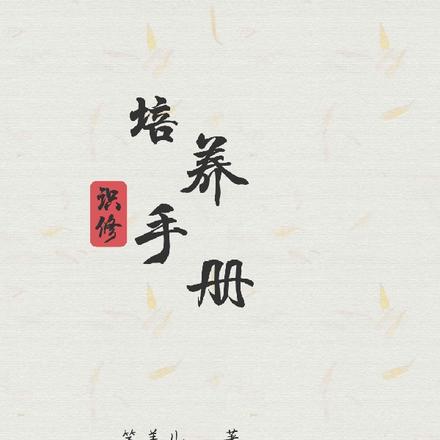 培养手册
识修
笑美儿 著